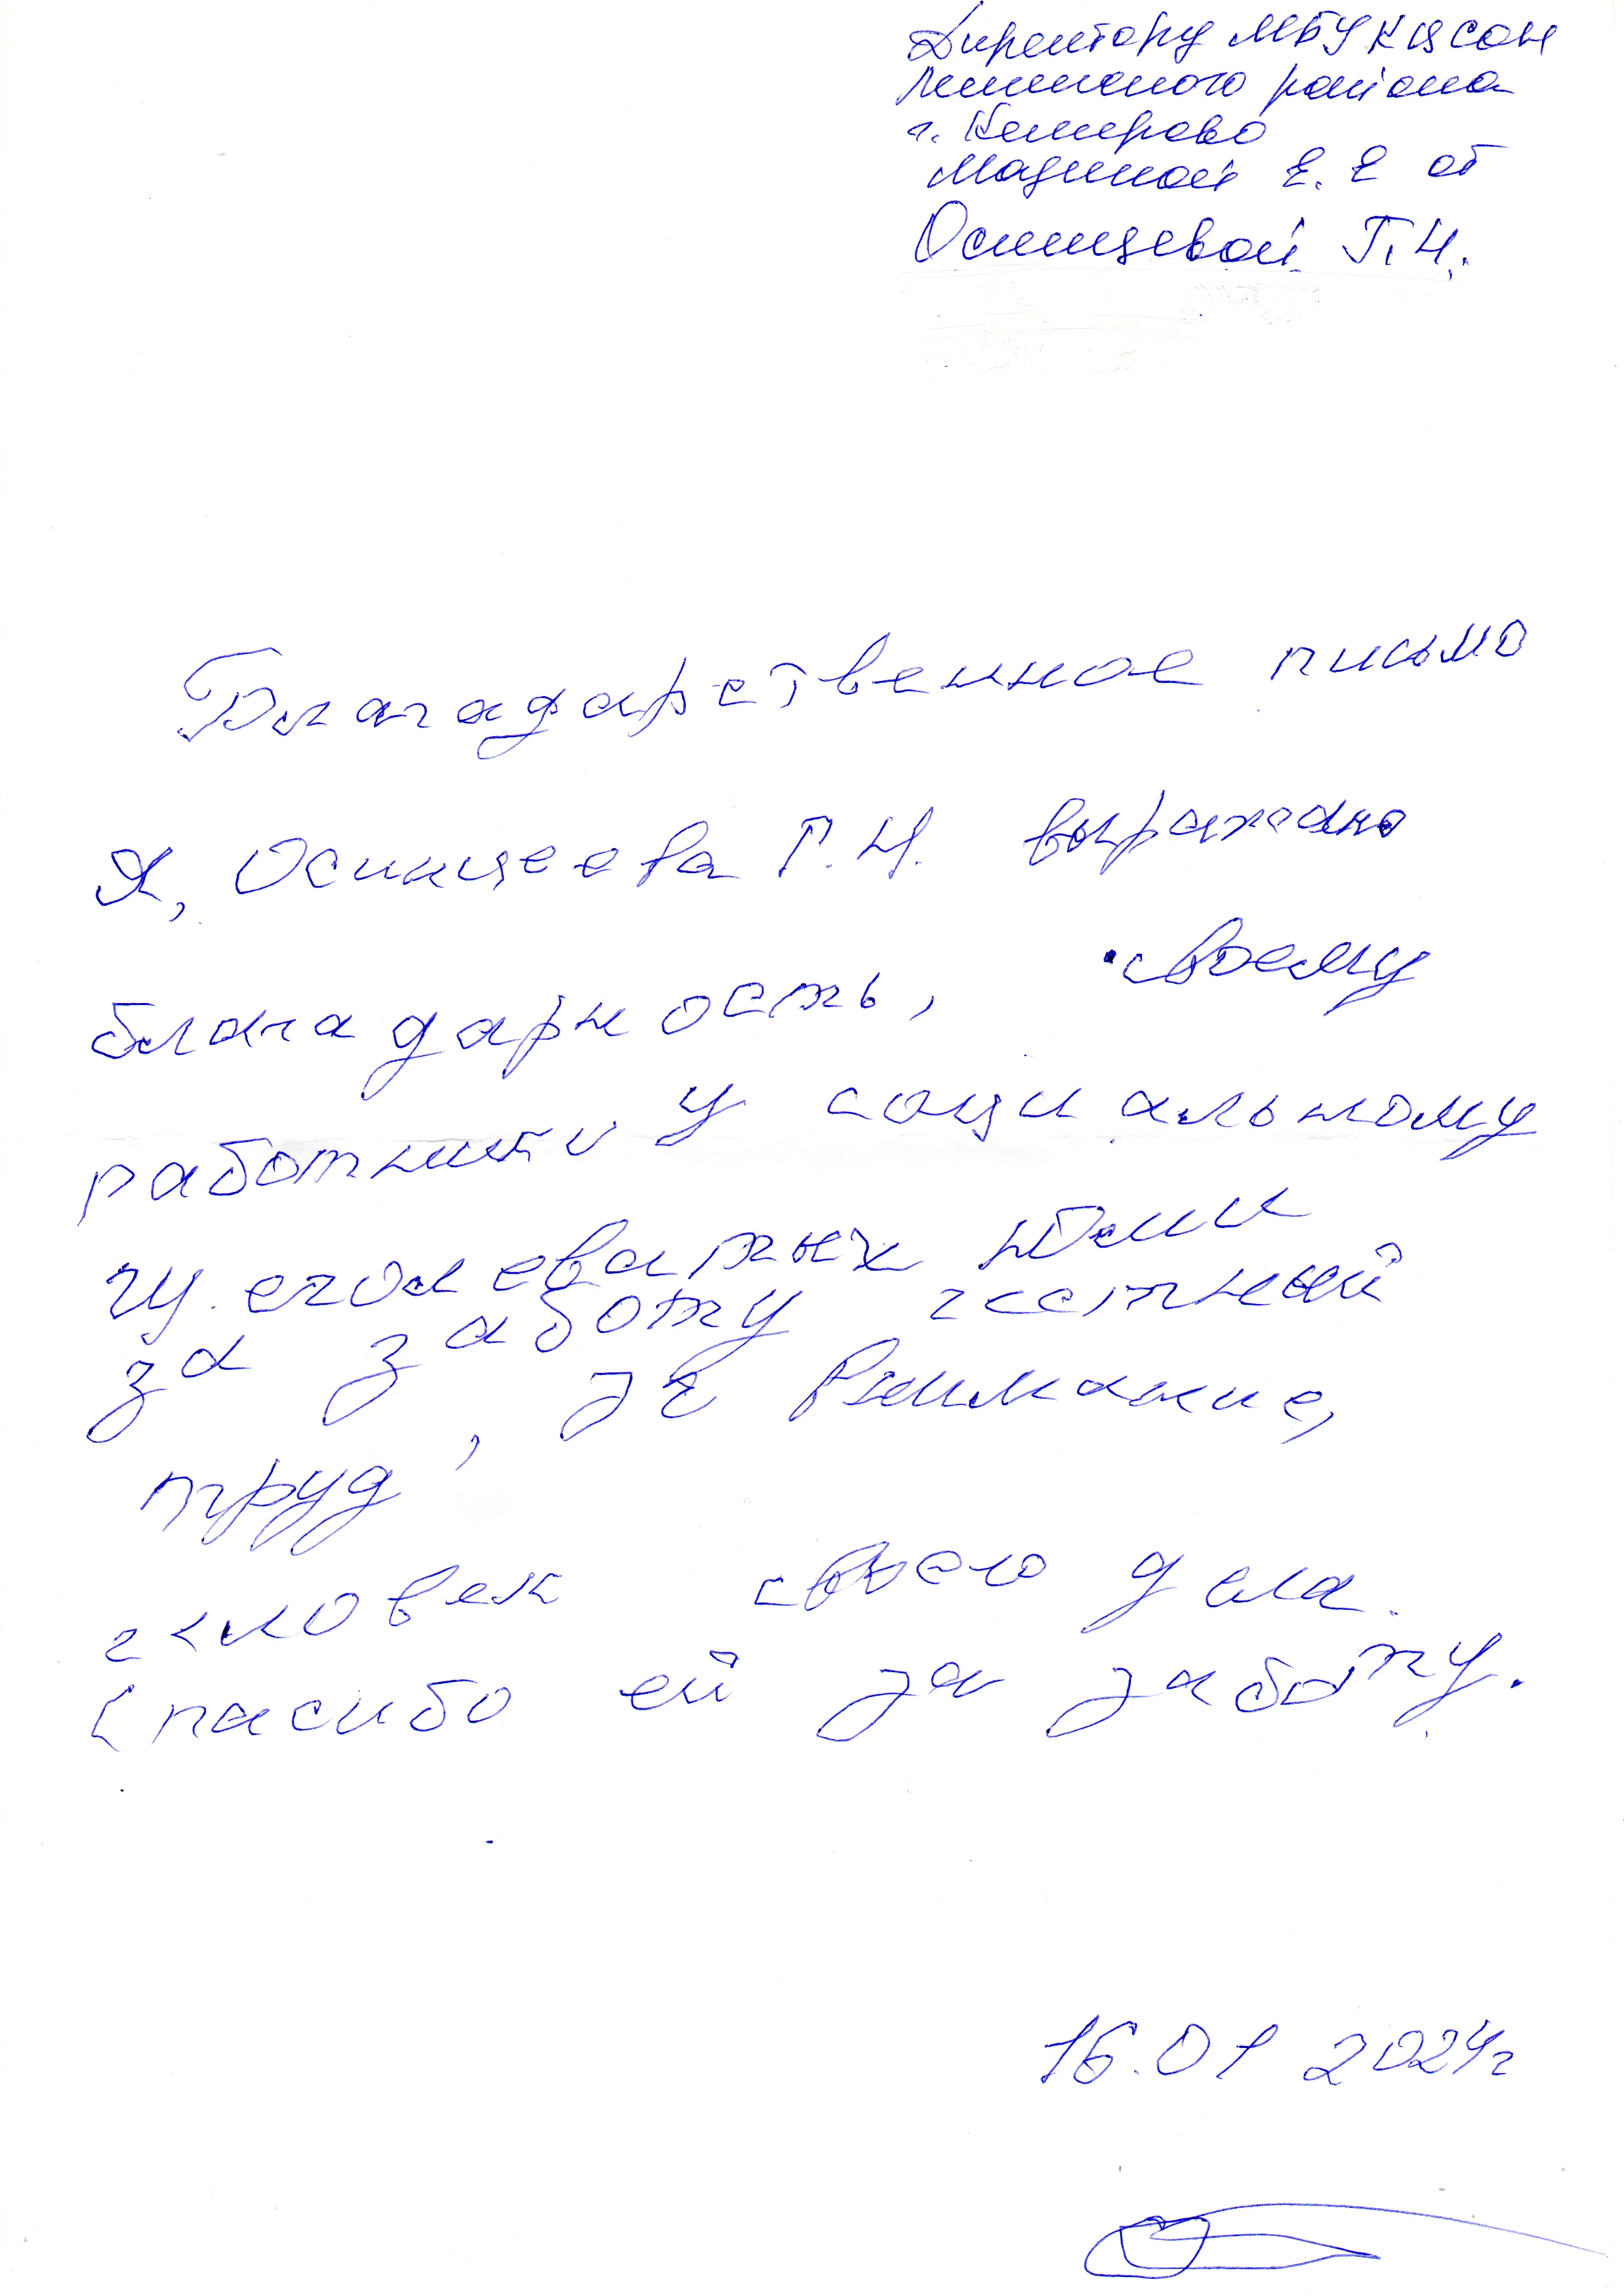 Директору МБУ КЦСОН
Ленинского района
г. Кемерово
Мазиной Е. Е от
Осинцевой Г. Н.
Благадарственное письмо
Я, Осинцеева Г. Н. выражаю
благадарность, своему
работнику социальному
за заботу честный
труд, за внимание,
человек своего дела.
Спасибо ей за заботу.
16.01 2024г